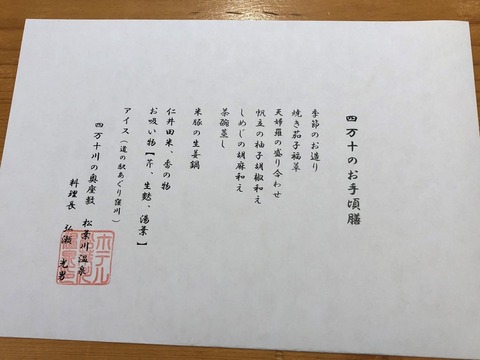 四万十のお手頃膳
季節のお造り
焼き茄子福草
天婦羅の盛り合わせ
帆立の柚子胡椒和え
しめじの胡麻和え
茶碗蒸し
米豚の生姜鍋
仁井田米、香の物
お吸い物【芹、生麩、湯葉】
アイス（道の駅あぐり窪川）
四万十川の奥座敷　松葉川温泉
料理長　弘瀬　光男
ホテル松葉川温泉